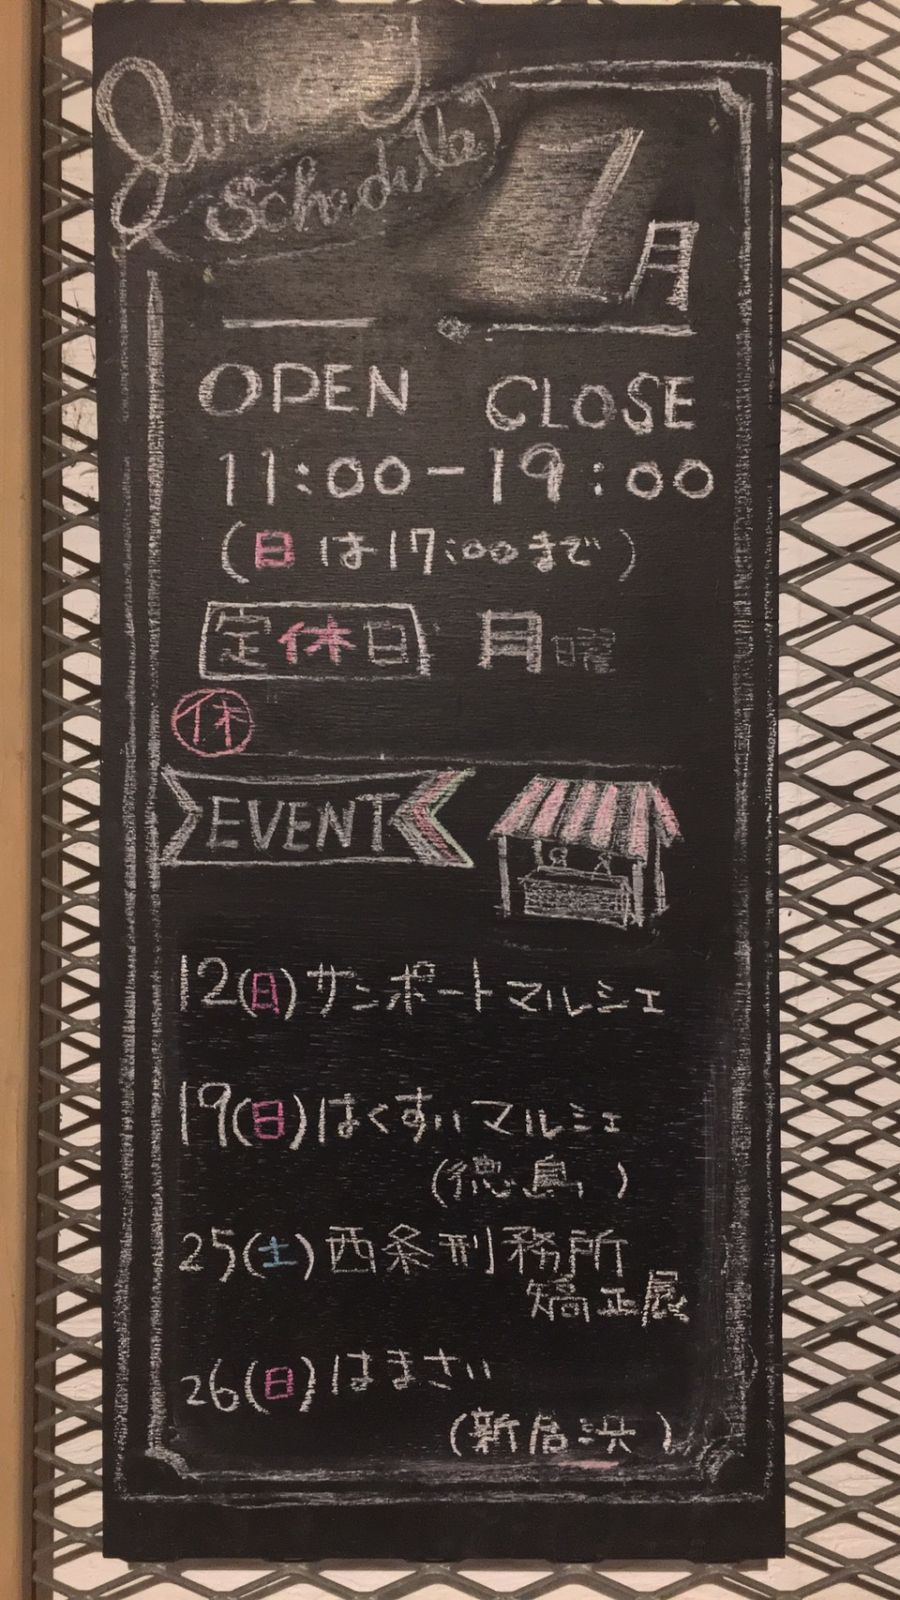 January
Schedule
1月
OPEN CLOSE
11:00-19:00
(日は17:00まで)
定休日 月曜
休
EVENT
12(日)サンポートマルシェ
19(日)はくすいマルシェ
(徳島)
25(土)西条刑務所
矯正展
26(日)はまさい
(新居浜)